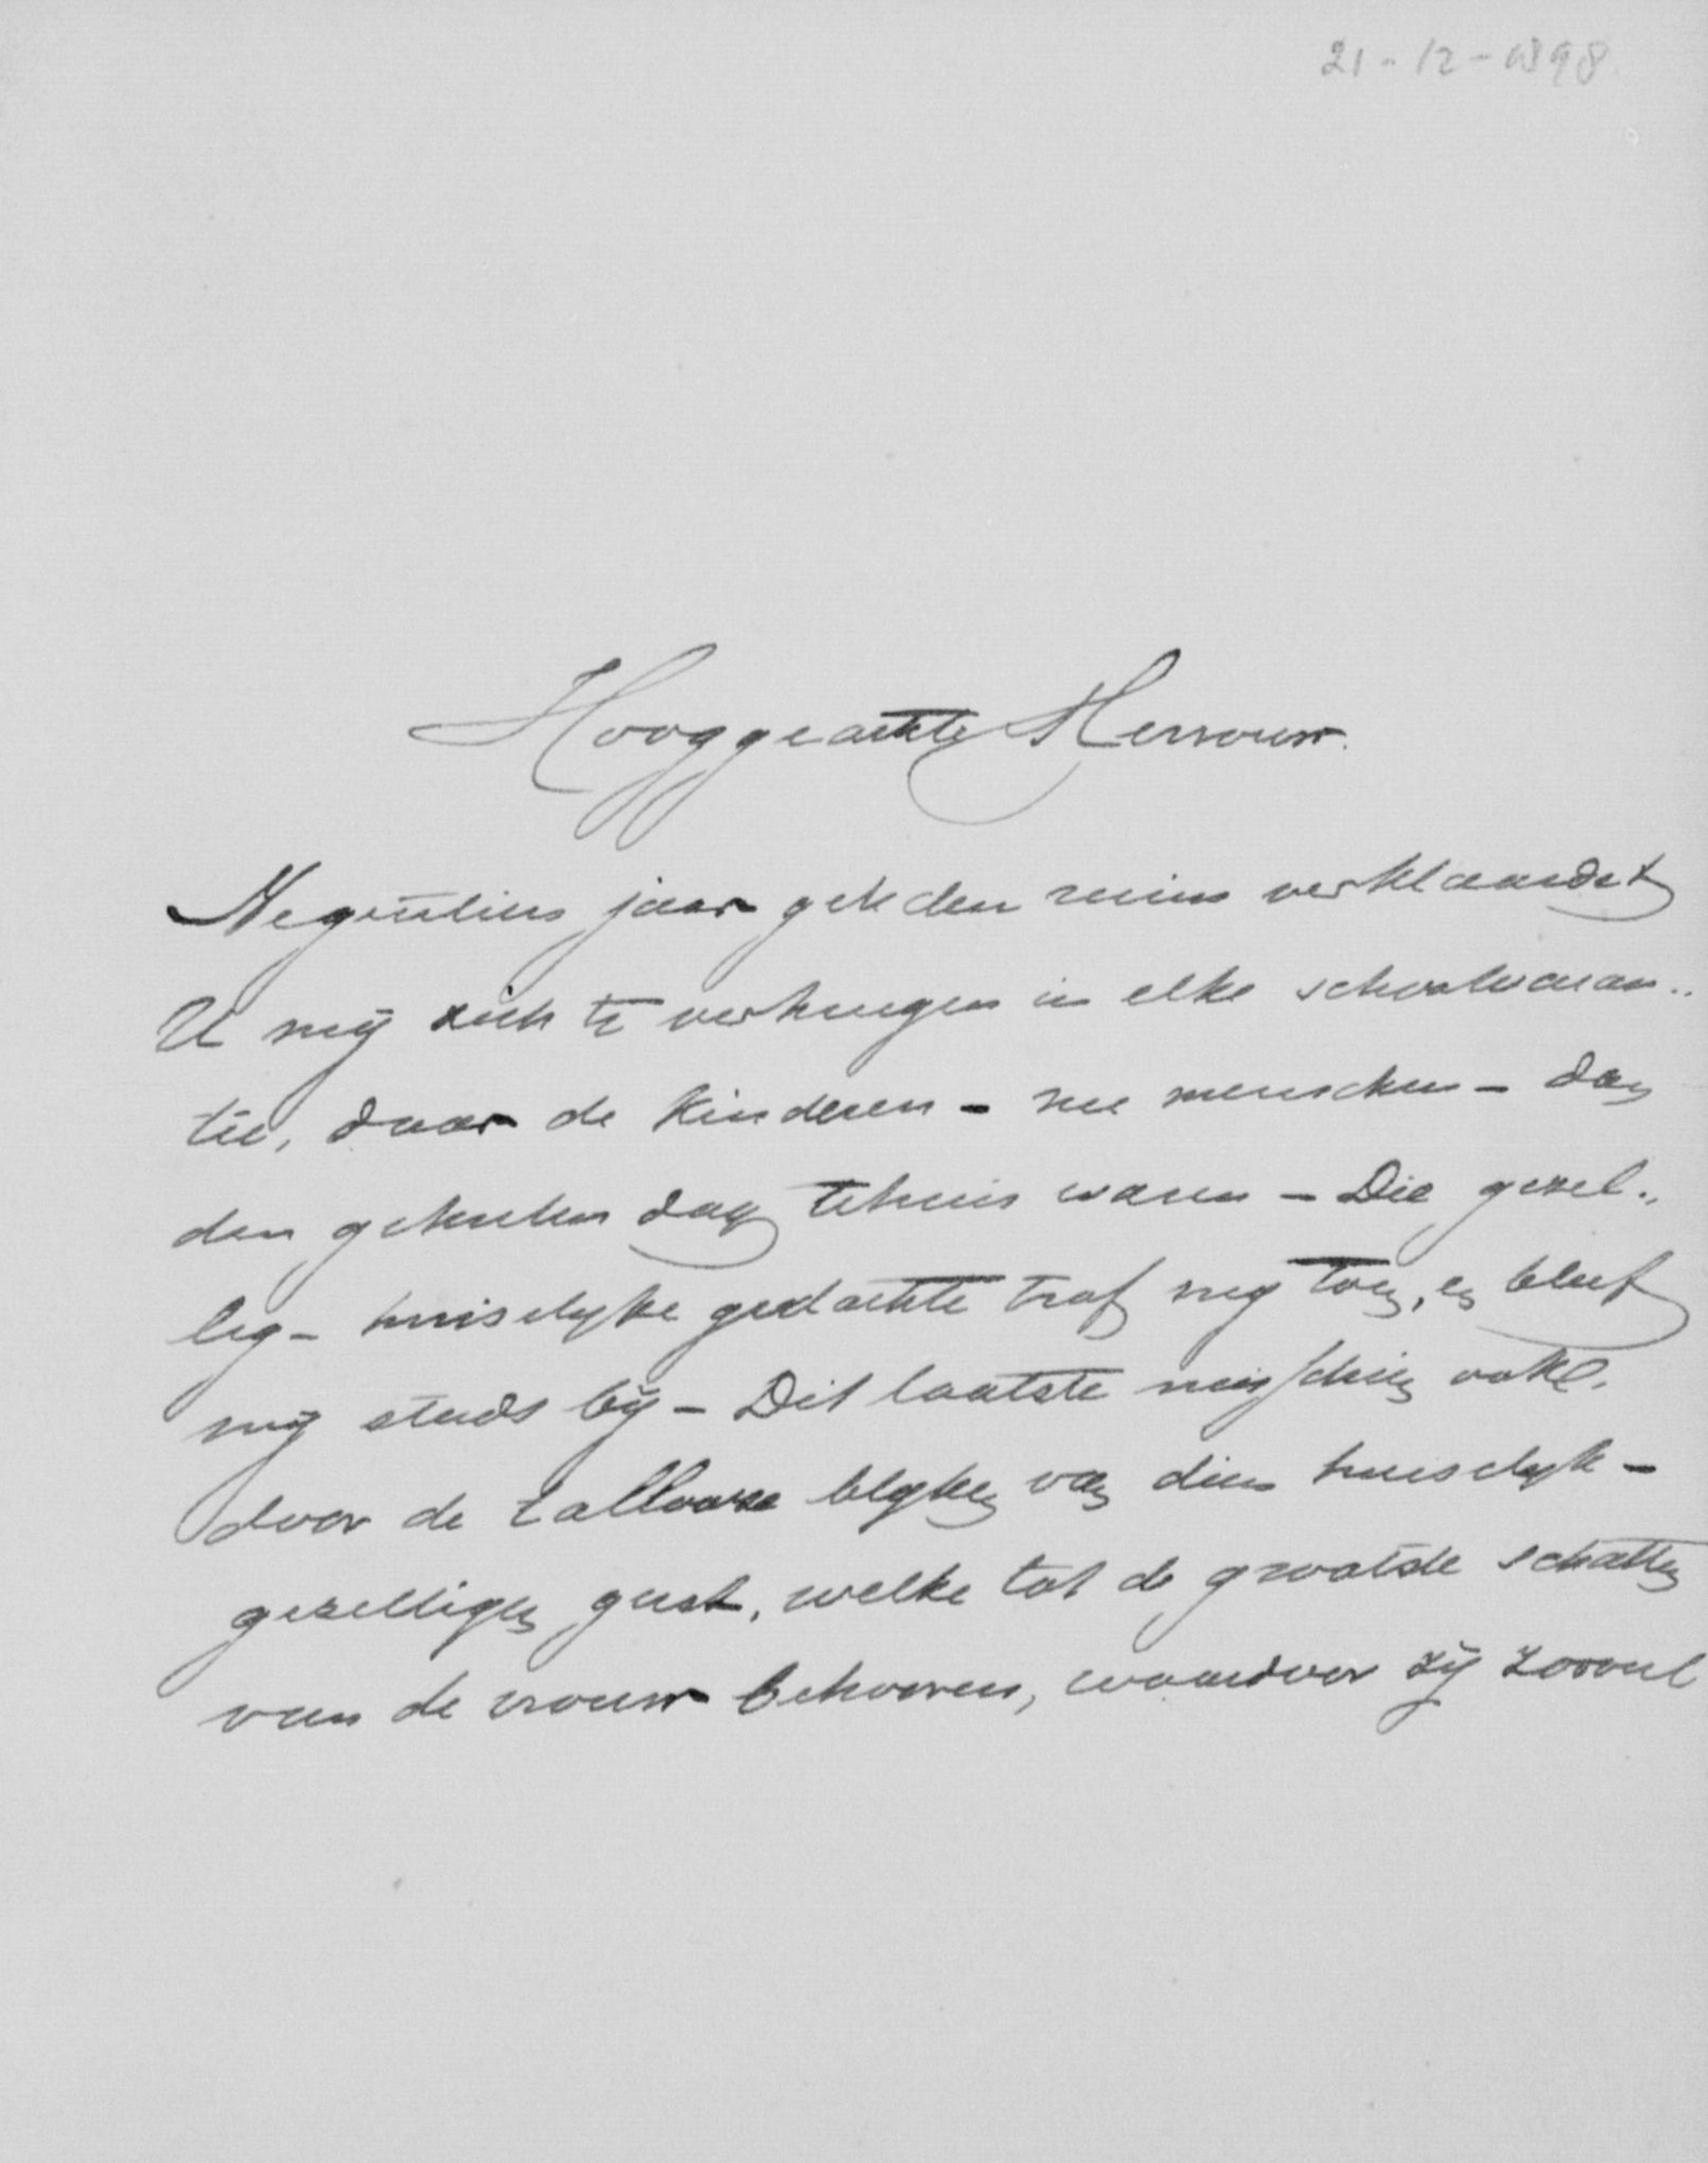 21-12-1898
Hooggeachte Mevrouw.
Negentien jaar geleden ruim verklaardet
U mij zich te verheugen in elke schoolvacan-
tie, daar de kinderen - nu menschen - dan
den geheelen dag tehuis waren - Die gezel-
lig- huiselyke gedachte trof mij toen, en bleef
mij steeds bij - Dit laatste misschien ook
door de tallooze blyken van dien huiselyk-
gezelligen geest, welke tot de grootste schatten
van de vrouw behooren, waardoor zij zooveel